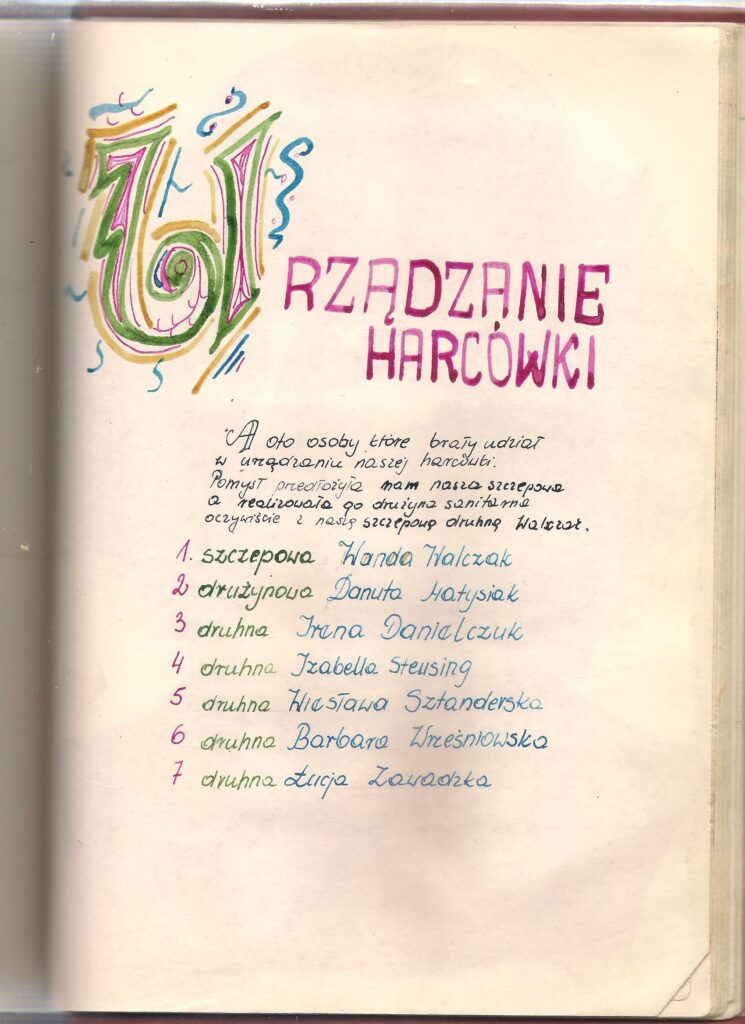 URZĄDZANIE
HARCÓWKI
A oto osoby które brały udział
w urządzaniu naszej harcówki.
Pomysł przedłożyła nam nasza szczepowa
a realizowała go drużyna sanitarna
oczywiście z naszą szczepową druhną Walczak.
1. szczepowa Wanda Walczak
2 drużynowa Danuta Matysiak
3 druhna Irena Danielczuk
4 druhna Izabella Steusing
5 druhna Wiesława Sztanderska
6 druhna Barbara Wrześniowska
7 druhna Łucja Zawadzka